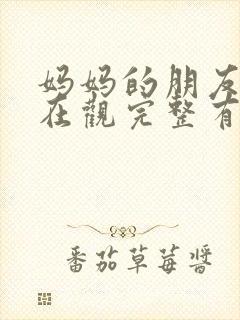 妈妈的朋友
在觀完整有
番茄草莓醬